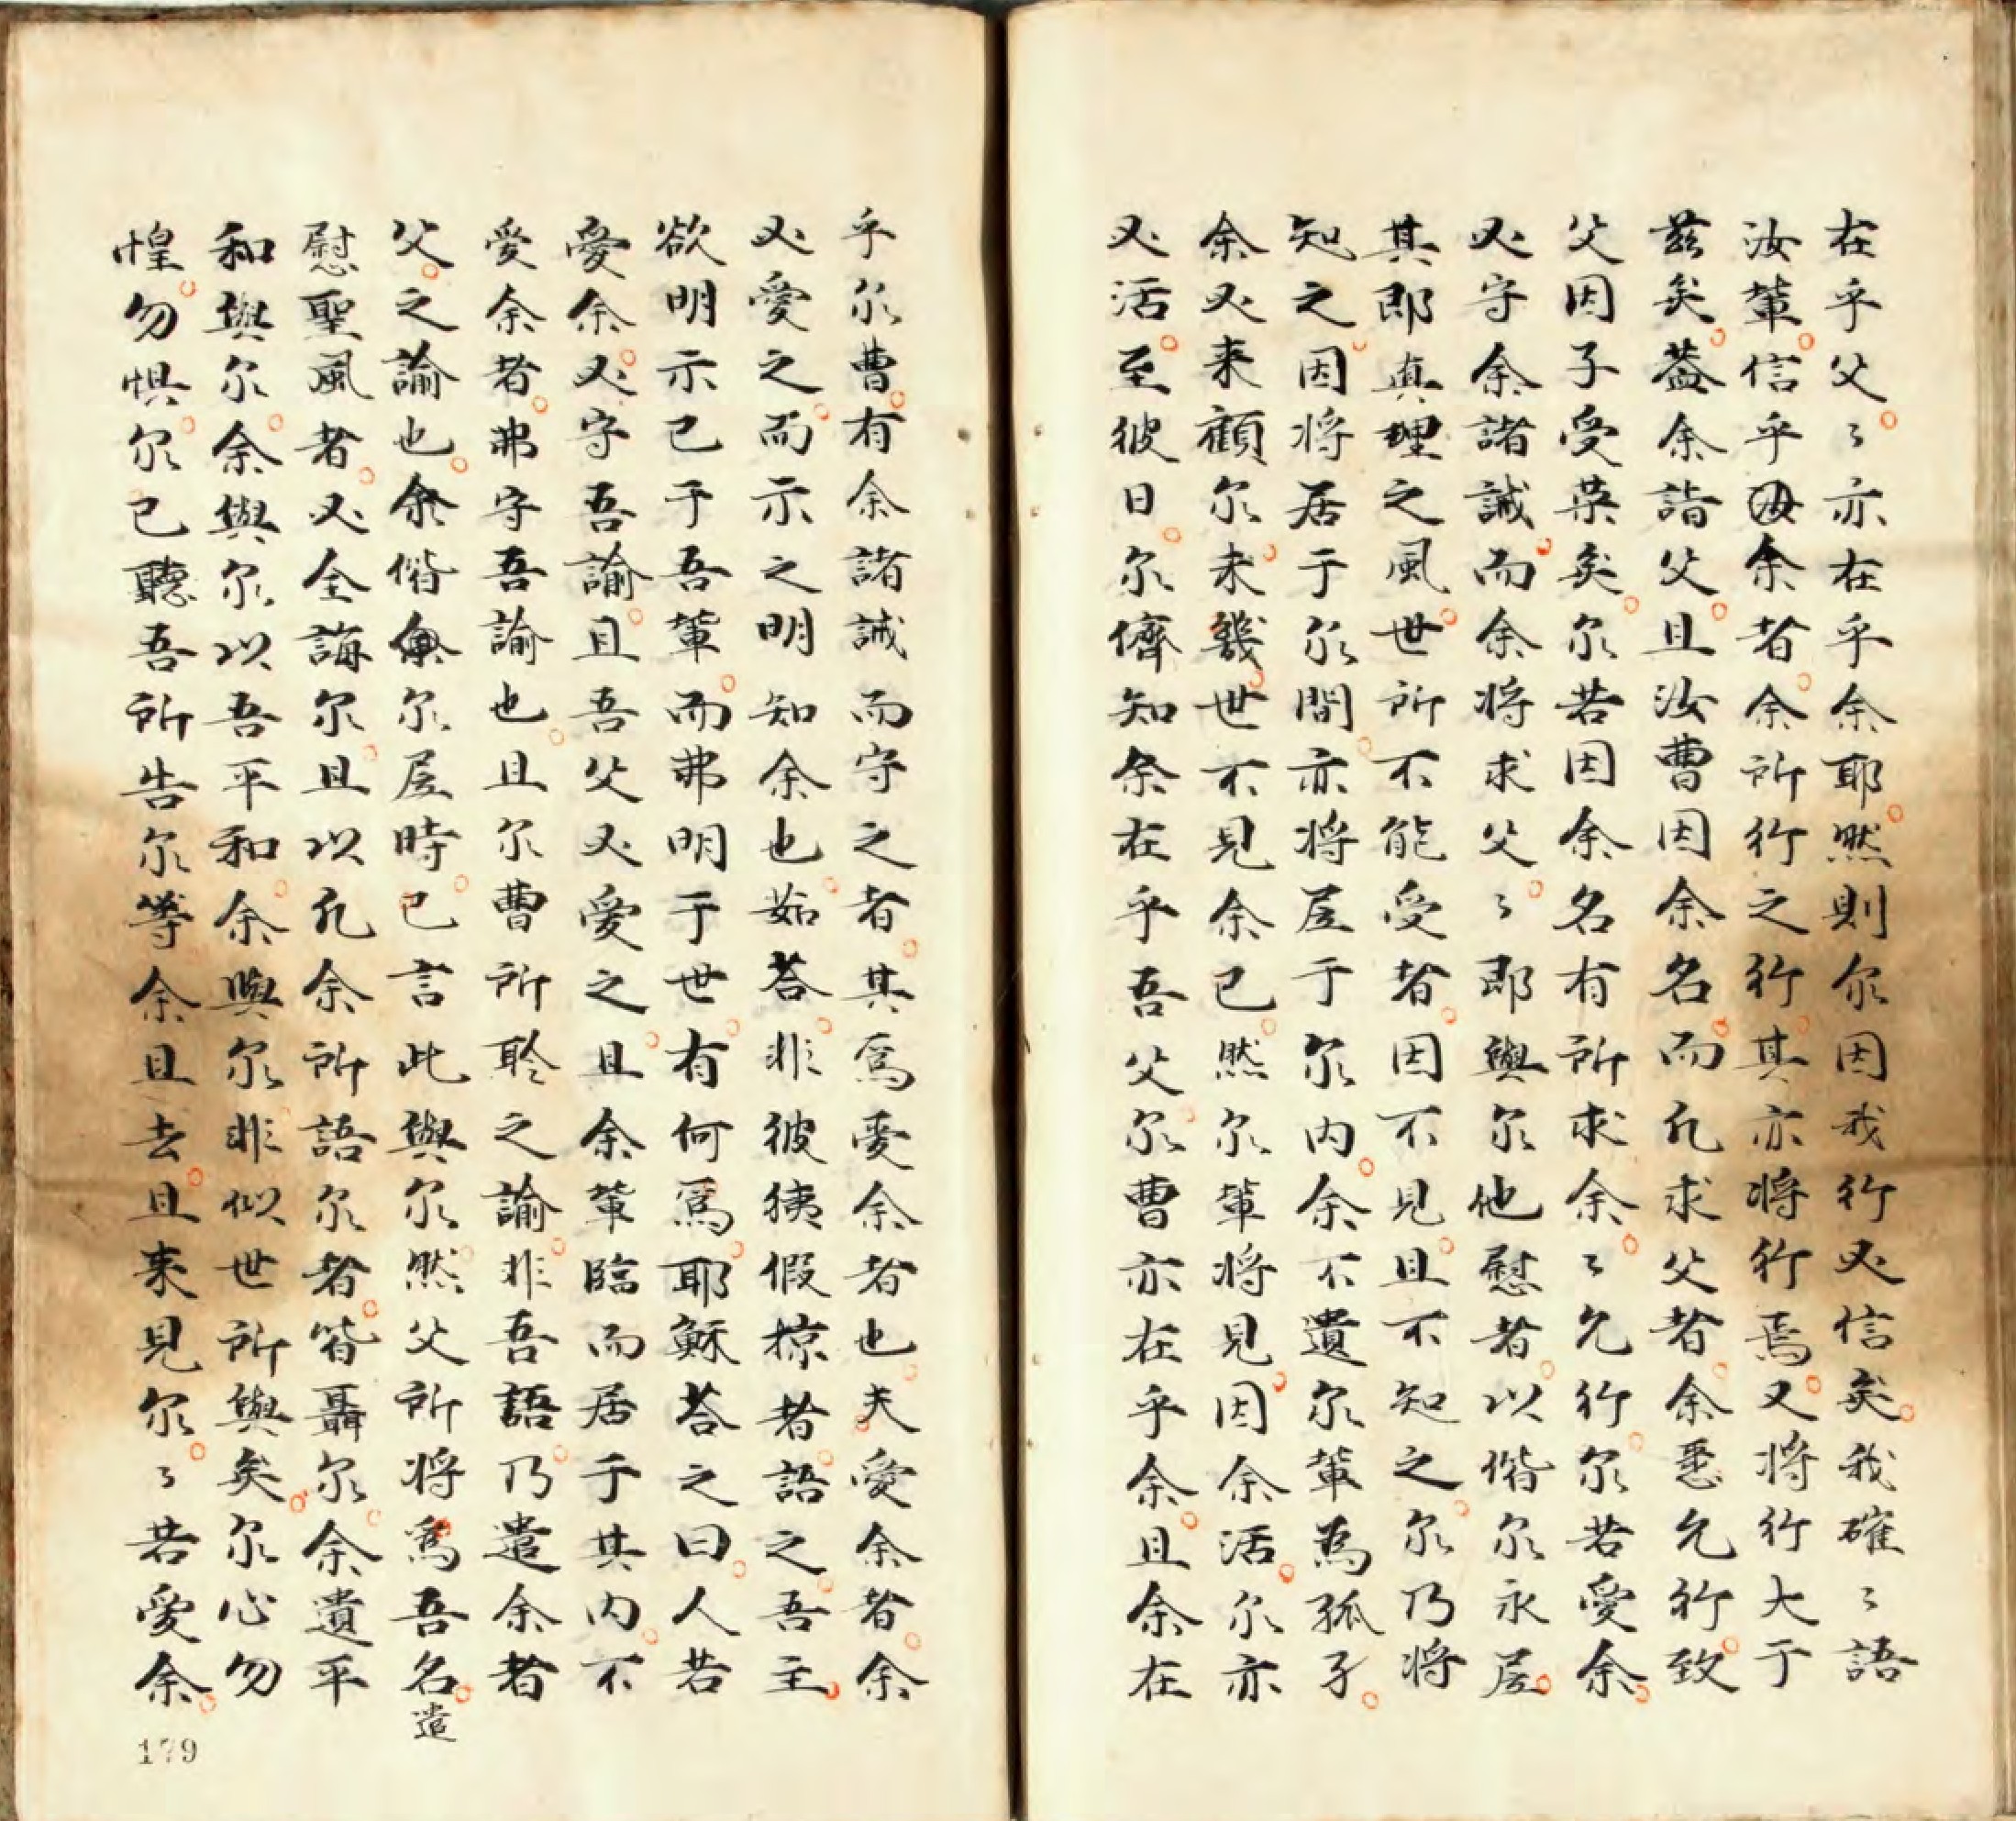 在乎父。〻亦在乎余耶。然則尔因我行必信矣。我確〻語
汝輩。信乎余者。余所行之行。其亦将行焉。又将行大于
茲矣。蓋余詣父。且汝曹因余名。而凢求父者。余悉允行。致
父因子受荣矣。尔若因余名有所求余。〻允行。尔若愛余。
必守余諸誡。而余将求父。〻即與尔他慰者。以偕尔永居。
其即真理之風。世所不能受者。因不見。且不知之。尔乃将
知之。因将居于尔間。亦将居于尔内。余不遺尔輩為孤子。
余必来顧尔。未幾。世不見余已。然尔輩将見。因余活。尔亦
必活。至彼日。尔儕知余在乎吾父。尔曹亦在乎余。且余在
乎尔曹。有余諸誡而守之者。其爲愛余者也。夫愛余者。余
必愛之。而示之明知余也。茹荅。非彼猗假掠者。語之。吾主。
欲明示已于吾輩。而弗明于世。有何爲。耶穌荅之曰。人若
愛余。必守吾諭。且吾父必愛之。且余輩臨而居于其内。不
愛余者。弗守吾諭也。且尔曹所聆之諭。非吾語。乃遣余者
父。之諭也。余偕尔居時。已言此與尔。然父所将爲吾名。遣
慰聖風者。必全誨尔。且以凢余所語尔者。皆聶尔。余遺平
和與尔。余與尔以吾平和。余與尔。非似世所與矣。尔心勿
惶。勿惧。尔已聽吾所告尔等。余且去。且来見尔。〻若愛余。
179